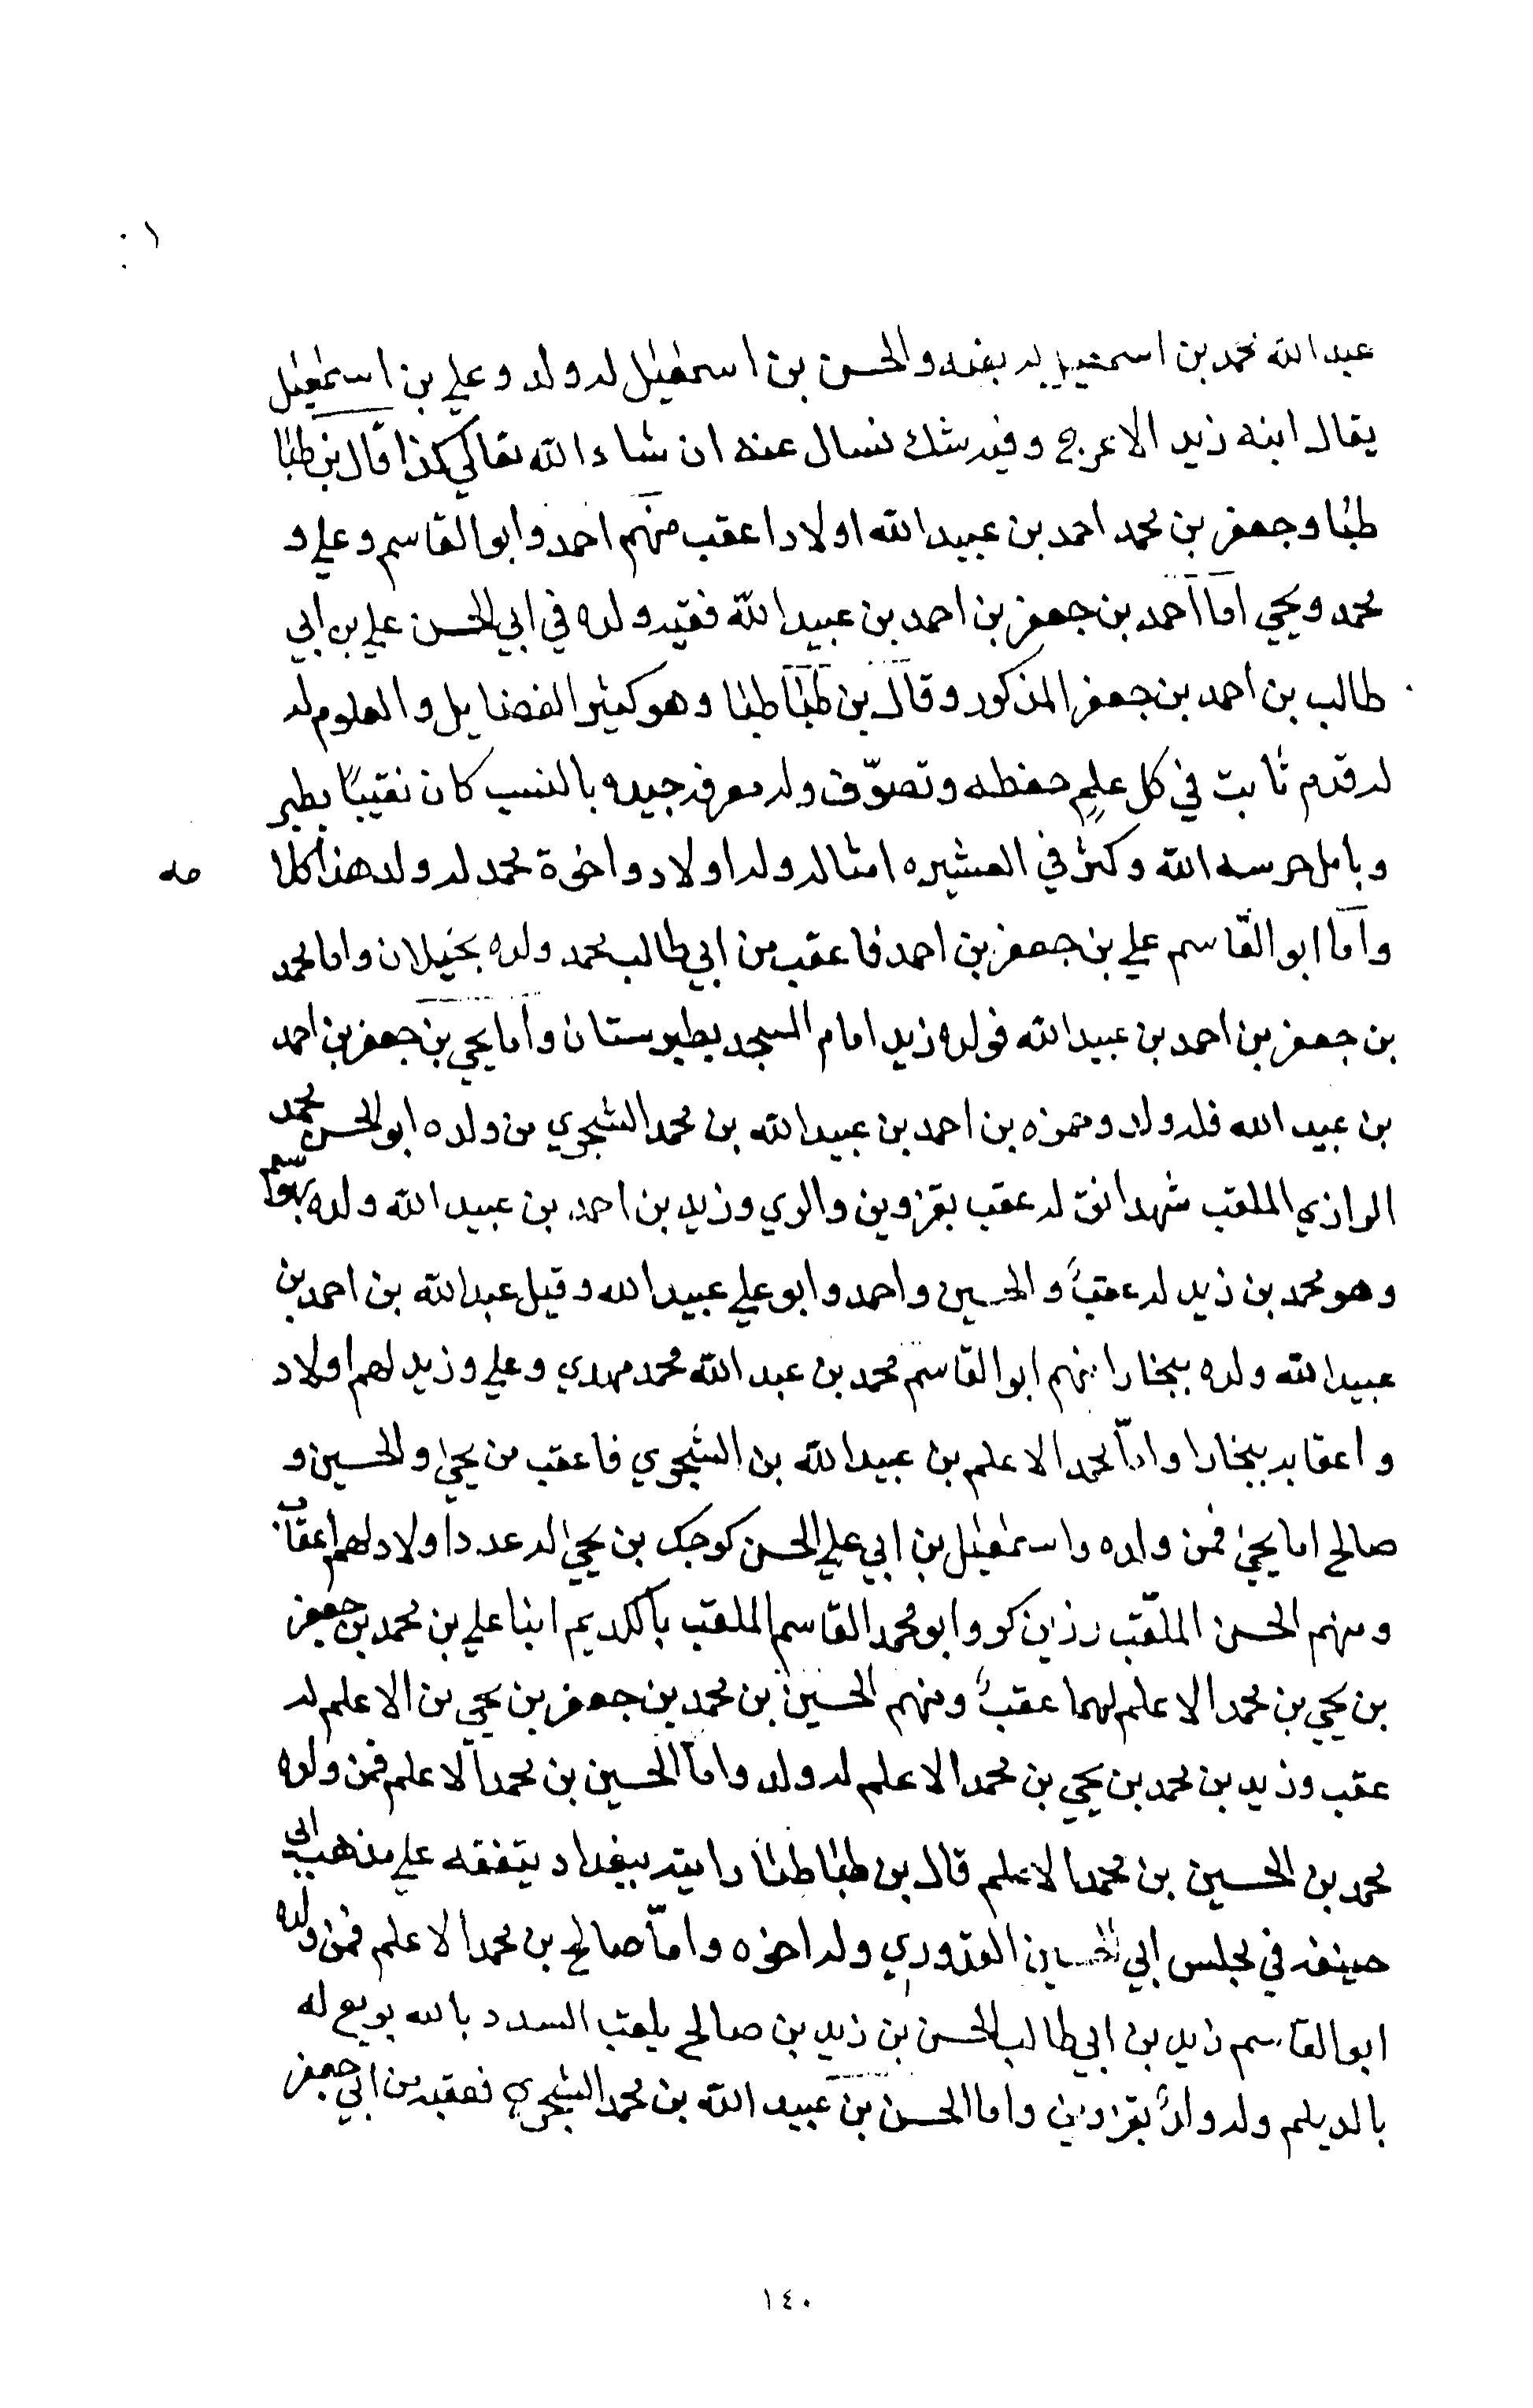 عبد الله محمد بن اسمعيل له بقيه والحسن بن اسمعيل له ولد وعلي بن اسمعيل
يقال ابنه زيد الاعرج وفيه شك نسال عنه ان شاء الله تعالي كذا قال بن طبا
طبا وجعفر بن محمد احمد بن عبيد الله اولادا عقب منهم احمد وابو القاسم وعلي و
محمد ويحيي اما احمد بن جعفر بن احمد بن عبيد الله فقيه ولده في ابي الحسن علي بن ابي
طالب بن احمد بن جعفر المذكور وقال بن طبا طبا وهو كثير الفضايل والعلوم له
له قدم ثابت في كل علم حفظه وتصوّف وله معرفه جيده بالنسب كان نقيبًا بطبر
وبامل حرسه الله وكثر في العشيره امثاله وله اولاد واخوة محمد له ولد هذا كلا
مه
واما ابو القاسم علي بن جعفر بن احمد فاعقب من ابي طالب محمد ولده بخيلان واما محمد
بن جعفر بن احمد بن عبيد الله فولده زيد امام المسجد بطبرستان واما يحيي بن جعفر بن احمد
بن عبيد الله فله ولد وحمزه بن احمد بن عبيد الله بن محمد الشجري من ولده ابو الحسن محمد
الرازي الملقب شهدانق له عقب بقزوين والري وزيد بن احمد بن عبيد الله ولده
وهو محمد بن زيد له عقبٌ والحسين واحمد وابو علي عبيد الله وقيل عبد الله بن احمد بن
عبيد الله ولده ببخارا منهم ابو القاسم محمد بن عبد الله محمد مهدي وعلي وزيد لهم اولاد
واعقابه ببخارا وامّا محمد الاعلم بن عبيد الله بن الشجري فاعقب من يحيي والحسين و
صالح اما يحيي فمن ولده واسمعيل بن ابي علي الحسن كوجك بن يحيي له عدد اولاد لهم اعقاب
ومنهم الحسن الملقّب رزين كو وابو محمد القاسم الملقب بالكديم ابنا علي بن محمد بن جعفر
بن يحيي بن محمد الاعلم لهما عقبٌ ومنهم الحسين بن محمد بن جعفر بن يحيي بن الاعلم له
عقب وزيد بن محمد بن يحيي بن محمد الاعلم له ولد واما الحسين بن محمد الاعلم فمن ولده
محمد بن الحسين بن محمد الاعلم قال بن طبا طبا رايته ببغداد يتفقه علي مذهب ابي
حنيفه في مجلس ابي الحسين القدوري وله اخوه وامّا صالح بن محمد الاعلم فمن ولده
ابو القاسم زيد بن ابي طالب الحسن بن زيد بن صالح يلقب السدد بالله بويع له
بالديلم وله ولدٌ بقزوين واما الحسن بن عبيد الله بن محمد الشجري فعقبه من ابي جعفر
١٤٠